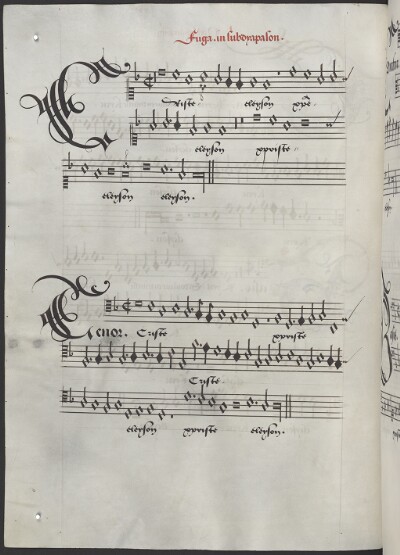 Fuga. in subdyapason.
Criste eleyson xpe
eleyson xpriste
eleyson eleyson.
Tenor. Criste xpriste
Criste.
eleyson xpriste eleyson.